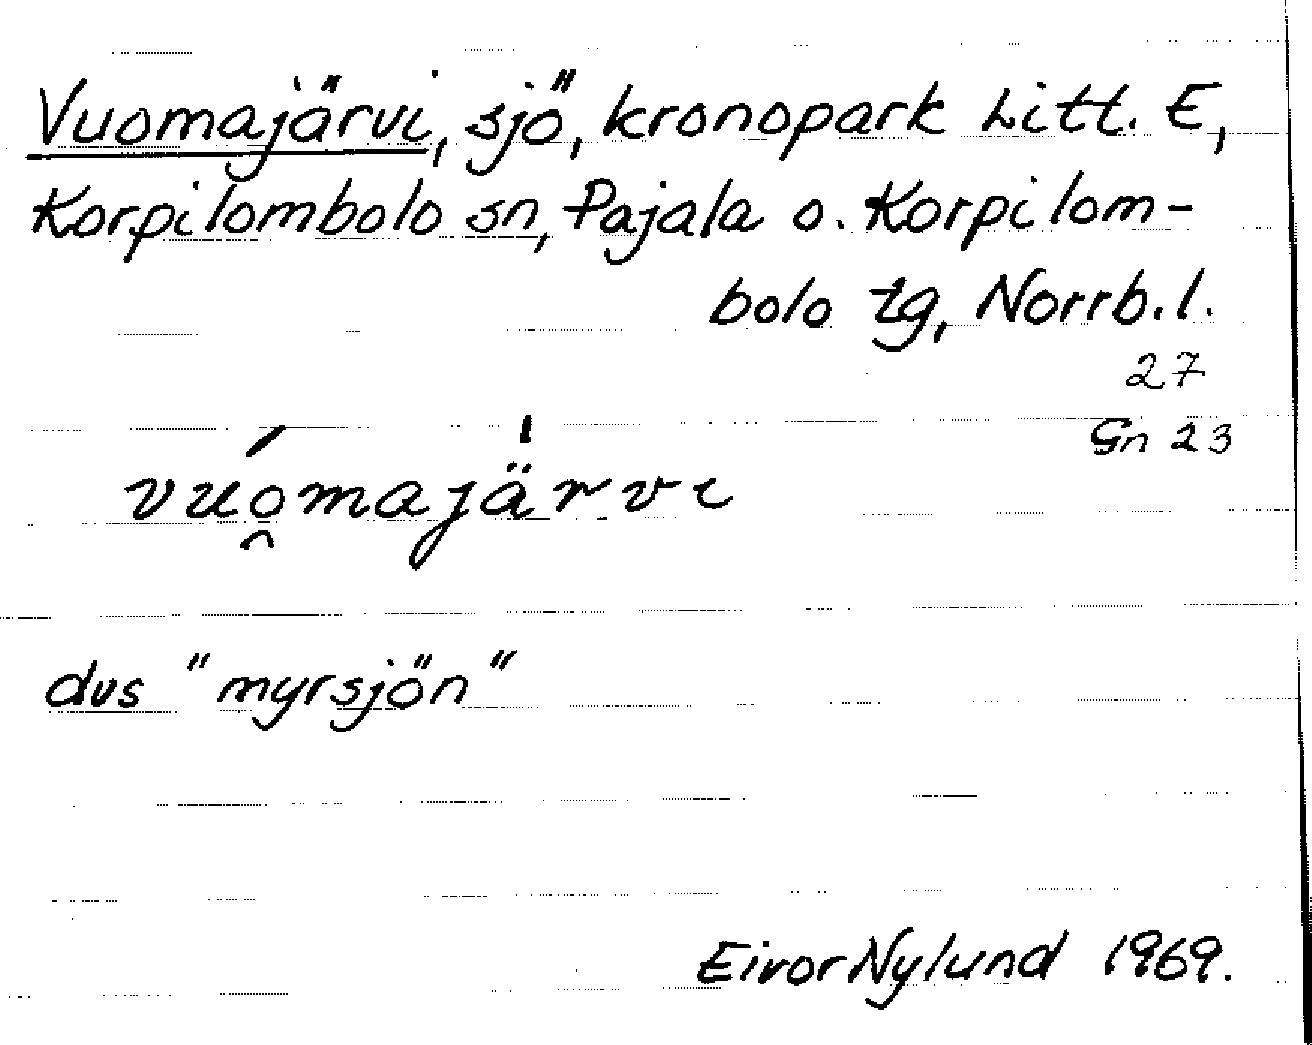 Vuomajärvi, sjö, kronopark Litt. E,
Korpilombolo sn, Pajala o. Korpilom-
bolo tg, Norrb.l.
27
Gn 23
vuó̯maja̍̈rvi
dvs "myrsjön"
Eivor Nylund 1969.